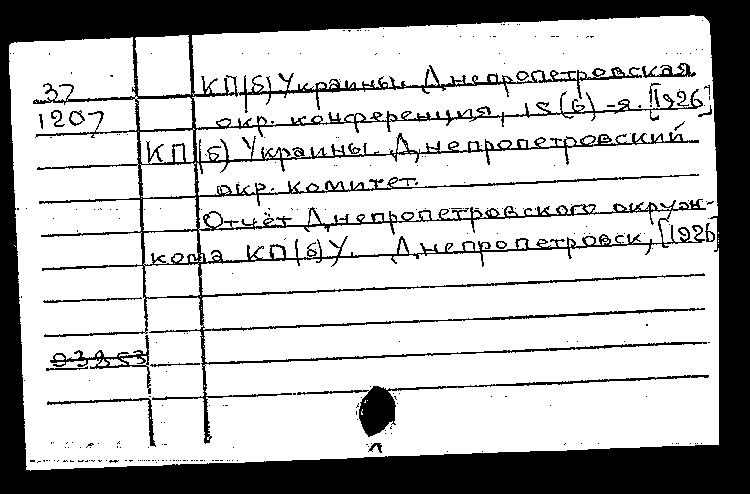 37
1207
КП(б) Украины. Днепропетровская
окр. конференция, 18(6)-я. [1926]
КП(б) Украины. Днепропетровский
окр. комитет.
Отчёт Днепропетровского окруж-
кома КП(б)У. Днепропетровск, [1926